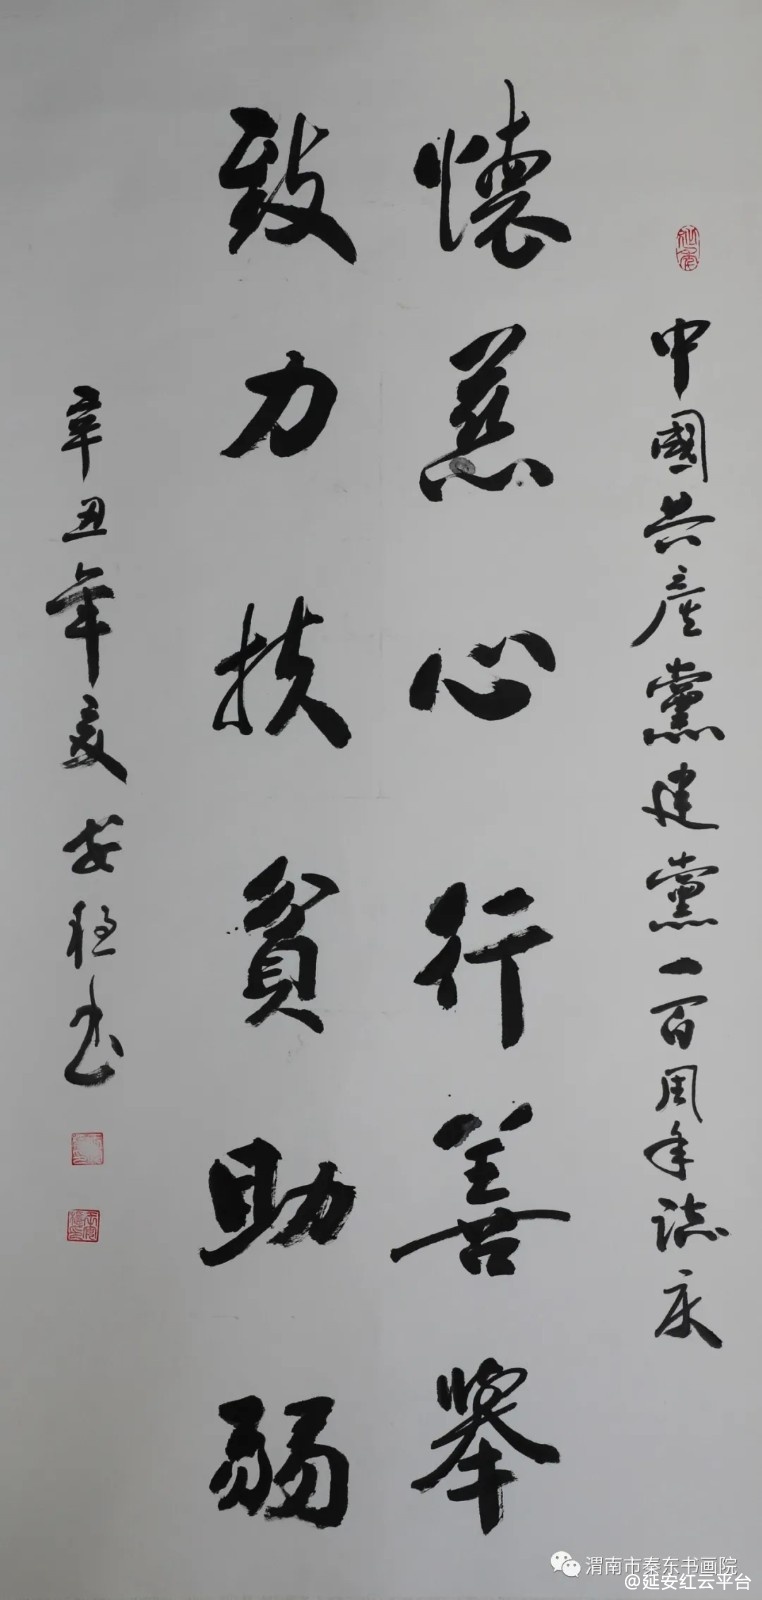 中國共產黨建黨一百周年誌庆
懷慈心行善舉
致力扶貧助弱
辛丑年夏安稳书
渭南市秦东书画院
@延安红云平台